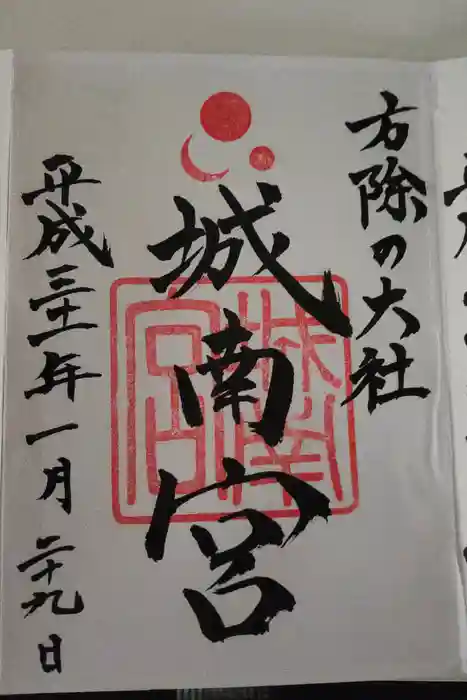 方除の大社
城南宮
城南宮
平成三十一年一月二十九日